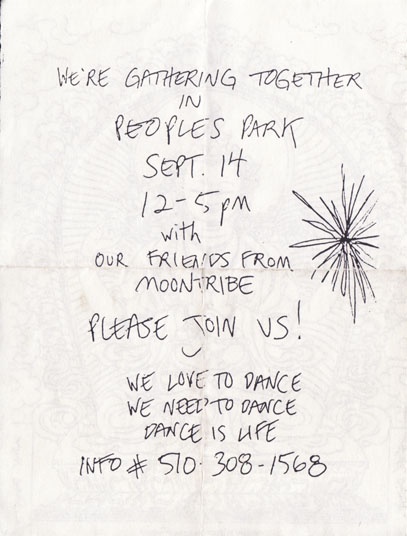 WE'RE GATHERING TOGETHER
IN
PEOPLES PARK
SEPT. 14
12-5pm
with
OUR FRIENDS FROM
MOONTRIBE
PLEASE JOIN US!
WE LOVE TO DANCE
WE NEED TO DANCE
DANCE IS LIFE
INFO # 510.308-1568